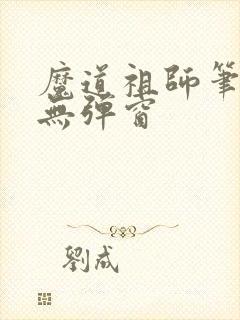 魔道祖師筆
無彈窗
劉成